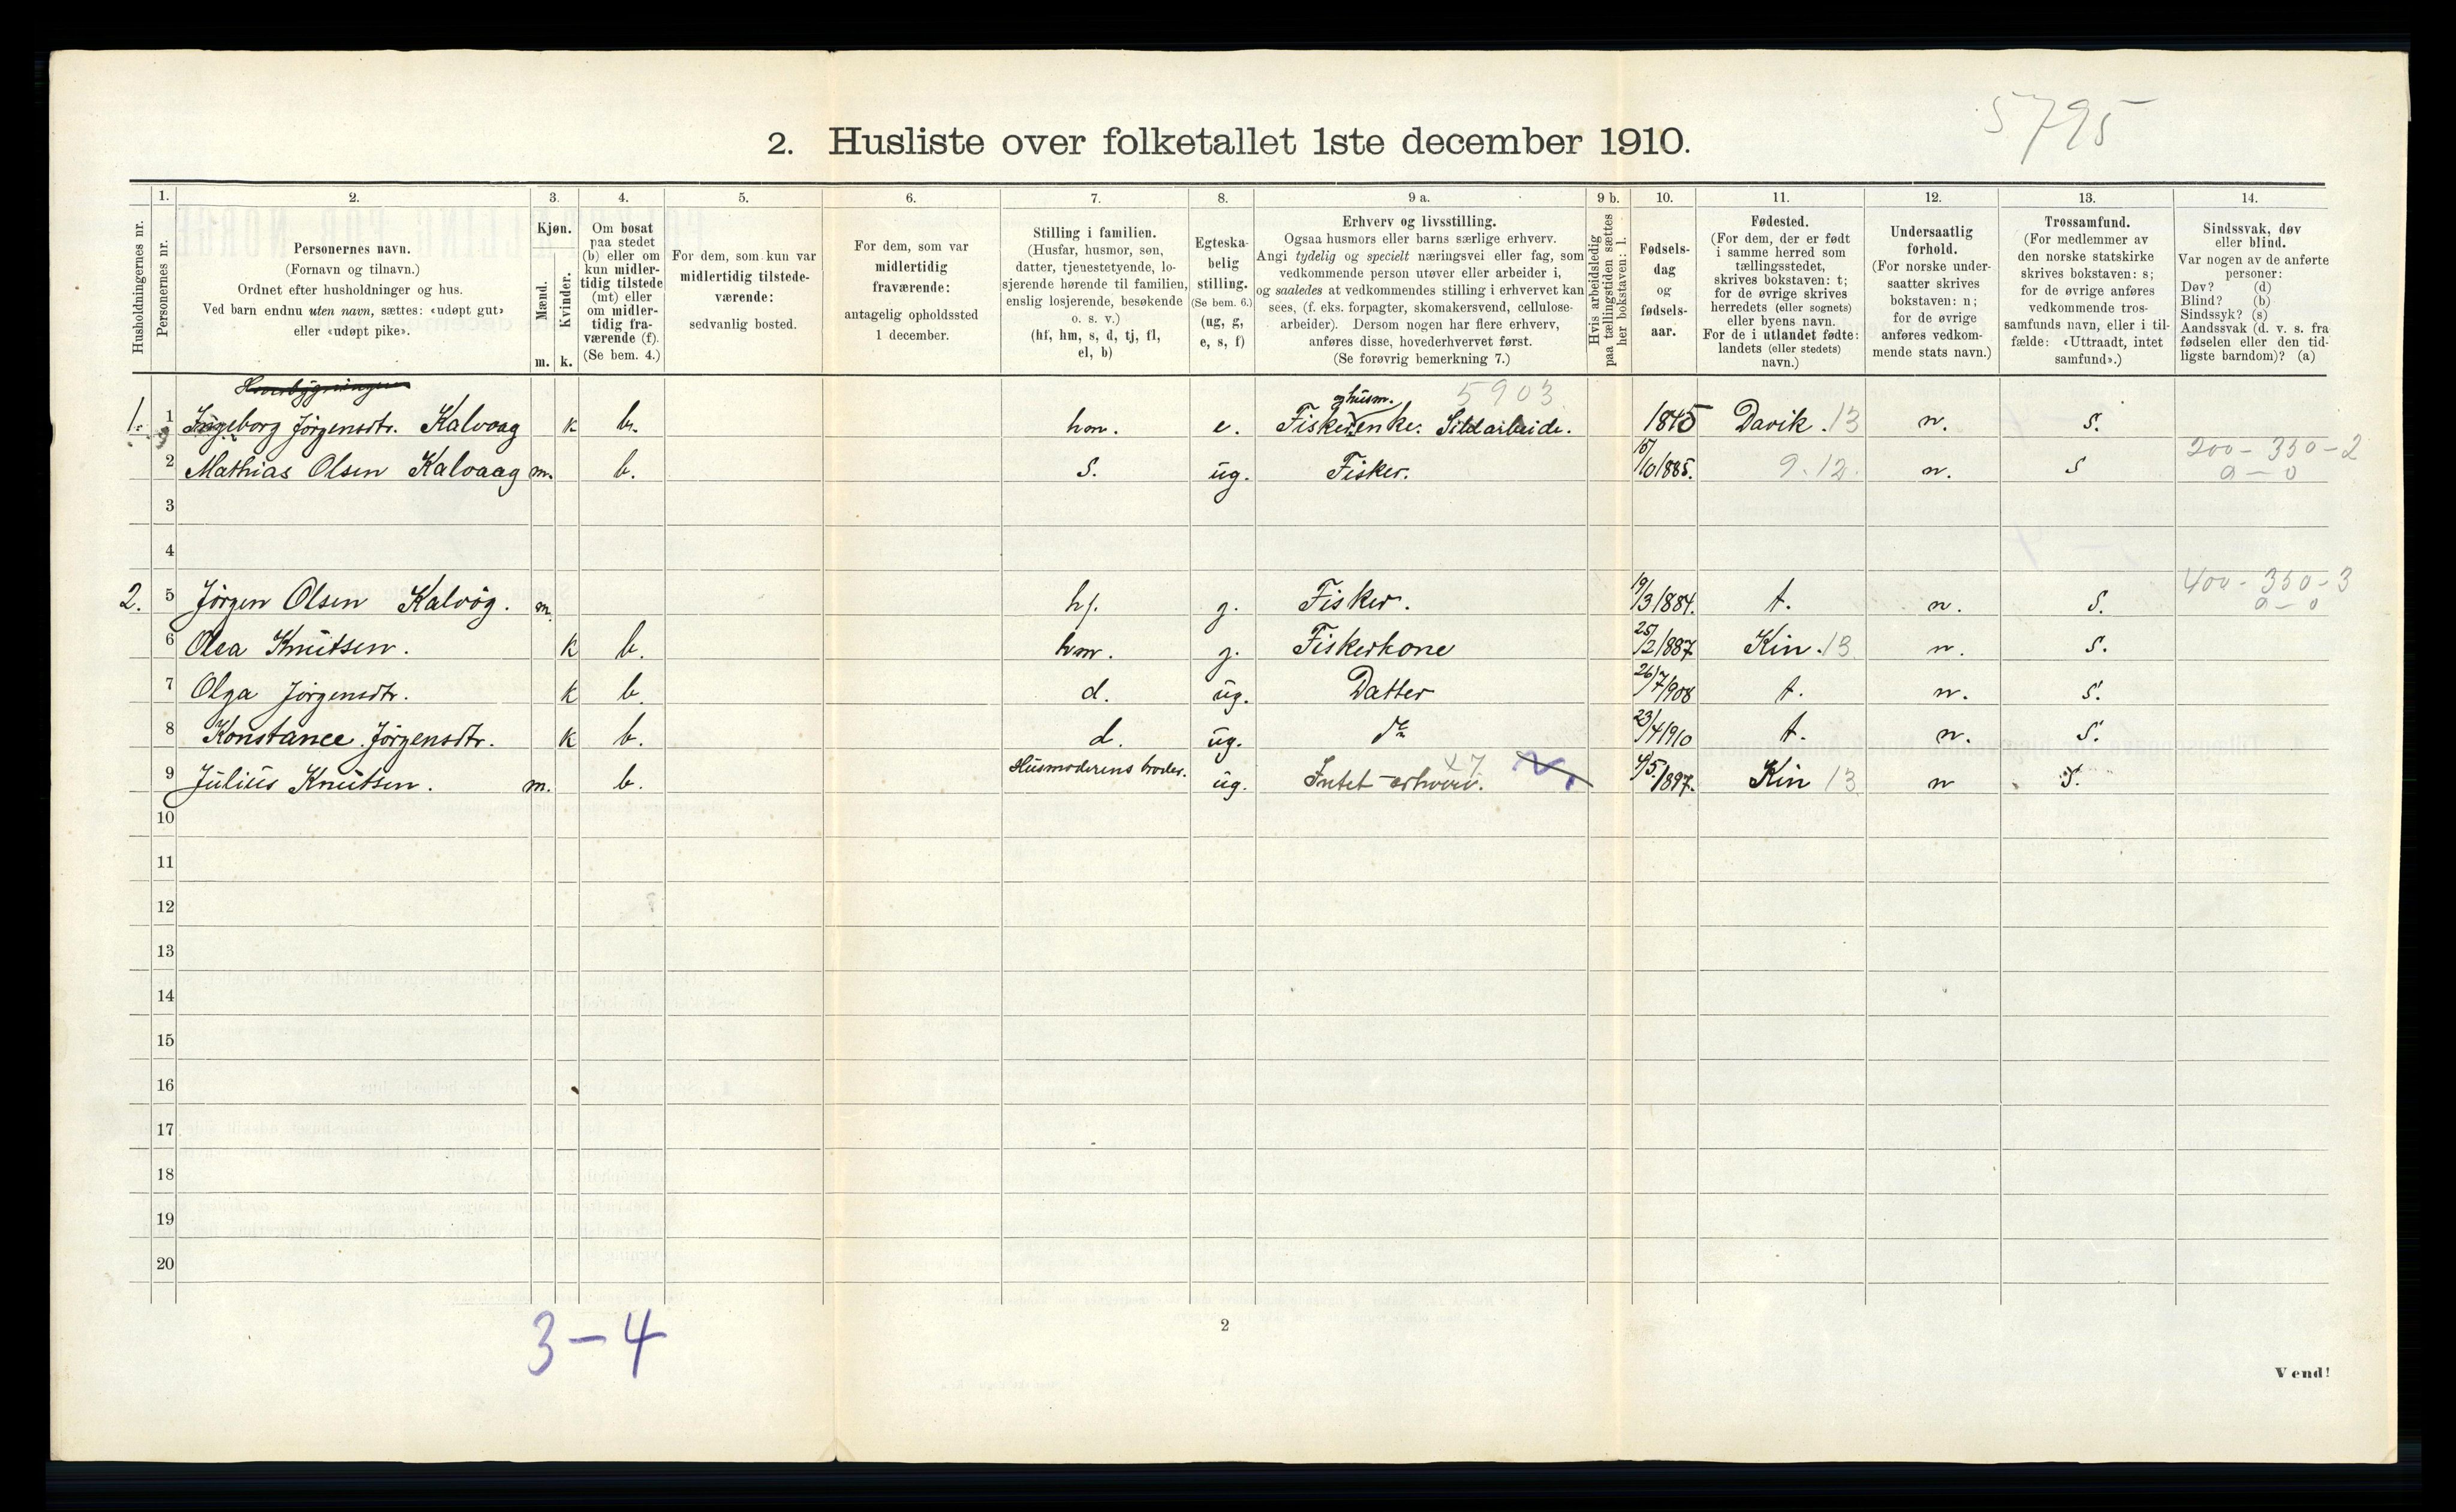 5795
2. Husliste over folketallet 1ste december 1910.
Husholdningernes nr.
1.
Personernes nr.
2.
Personernes navn.
(Fornavn og tilnavn.)
Ordnet efter husholdninger og hus.
Ved barn endnu uten navn, sættes: «udøpt gut»
eller «udøpt pike».
3.
Kjøn.
Mænd.
m.
Kvinder.
k.
4.
Om bosat
paa stedet
(b) eller om
kun midler-
tidig tilstede
(mt) eller
om midler-
tidig fra-
værende (f).
(Se bem. 4.)
5.
For dem, som kun var
midlertidig tilstede-
værende:
sedvanlig bosted.
6.
For dem, som var
midlertidig
fraværende:
antagelig opholdssted
1 december.
7.
Stilling i familien.
(Husfar, husmor, søn,
datter, tjenestetyende, lo-
sjerende hørende til familien,
enslig losjerende, besøkende
o. s. v.)
(hf, hm, s, d, tj, fl,
el, b)
8.
Egteska-
belig
stilling.
(Se bem. 6.)
(ug, g,
e, s, f)
9 a.
Erhverv og livsstilling.
Ogsaa husmors eller barns særlige erhverv.
Angi tydelig og specielt næringsvei eller fag, som
vedkommende person utøver eller arbeider i,
og saaledes at vedkommendes stilling i erhvervet kan
sees, (f. eks. forpagter, skomakersvend, cellulose-
arbeider). Dersom nogen har flere erhverv,
anføres disse, hovederhvervet først.
(Se forøvrig bemerkning 7.)
9 b.
Hvis arbeidsledig
paa tællingstiden sættes
her bokstaven: l.
10.
Fødsels-
dag
og
fødsels-
aar.
11.
Fødested.
(For dem, der er født
i samme herred som
tællingsstedet,
skrives bokstaven: t;
for de øvrige skrives
herredets (eller sognets)
eller byens navn.
For de i utlandet fødte:
landets (eller stedets)
navn.)
12.
Undersaatlig
forhold.
(For norske under-
saatter skrives
bokstaven: n;
for de øvrige
anføres vedkom-
mende stats navn.)
13.
Trossamfund.
(For medlemmer av
den norske statskirke
skrives bokstaven: s;
for de øvrige anføres
vedkommende tros-
samfunds navn, eller i til-
fælde: «Uttraadt, intet
samfund».)
14.
Sindssvak, døv
eller blind.
Var nogen av de anførte
personer:
Døv? (d)
Blind? (b)
Sindssyk? (s)
Aandssvak (d. v. s. fra
fødselen eller den tid-
ligste barndom)? (a)
Hovedbygningen
og husm. 5903
1. 1 Ingeborg Jörgensdtr. Kalvaag k b. hm. e. Fiskerenke. Sildarbeide. 1845 Davik. 13 n. S.
2 Mathias Olsen Kalvaag m. b. S. ug. Fisker. 15/10 1885. 9.12. n. S 200 - 350 - 2
a - 0
3
4
2. 5 Jörgen Olsen Kalvåg. m. hf. g. Fisker. 19/3 1884. t. n. S. 400 - 350 - 3
a - 0
6 Olea Knutsen. k b. hm. g. Fiskerkone 25/2 1887 Kin. 13 n. S.
7 Olga Jörgensdtr. k b. d. ug. Datter 26/7 1908 t. n. S.
8 Konstance Jörgensdtr. k b. d. ug. do 23/4 1910 t. n. S.
9 Julius Knutsen. m. b. Husmoderens broder. ug. Intet erhverv. x7 /5 1897. Kin 13 n S.
10
11
12
13
14
15
16
17
18
19
20
3-4
2
Vend!